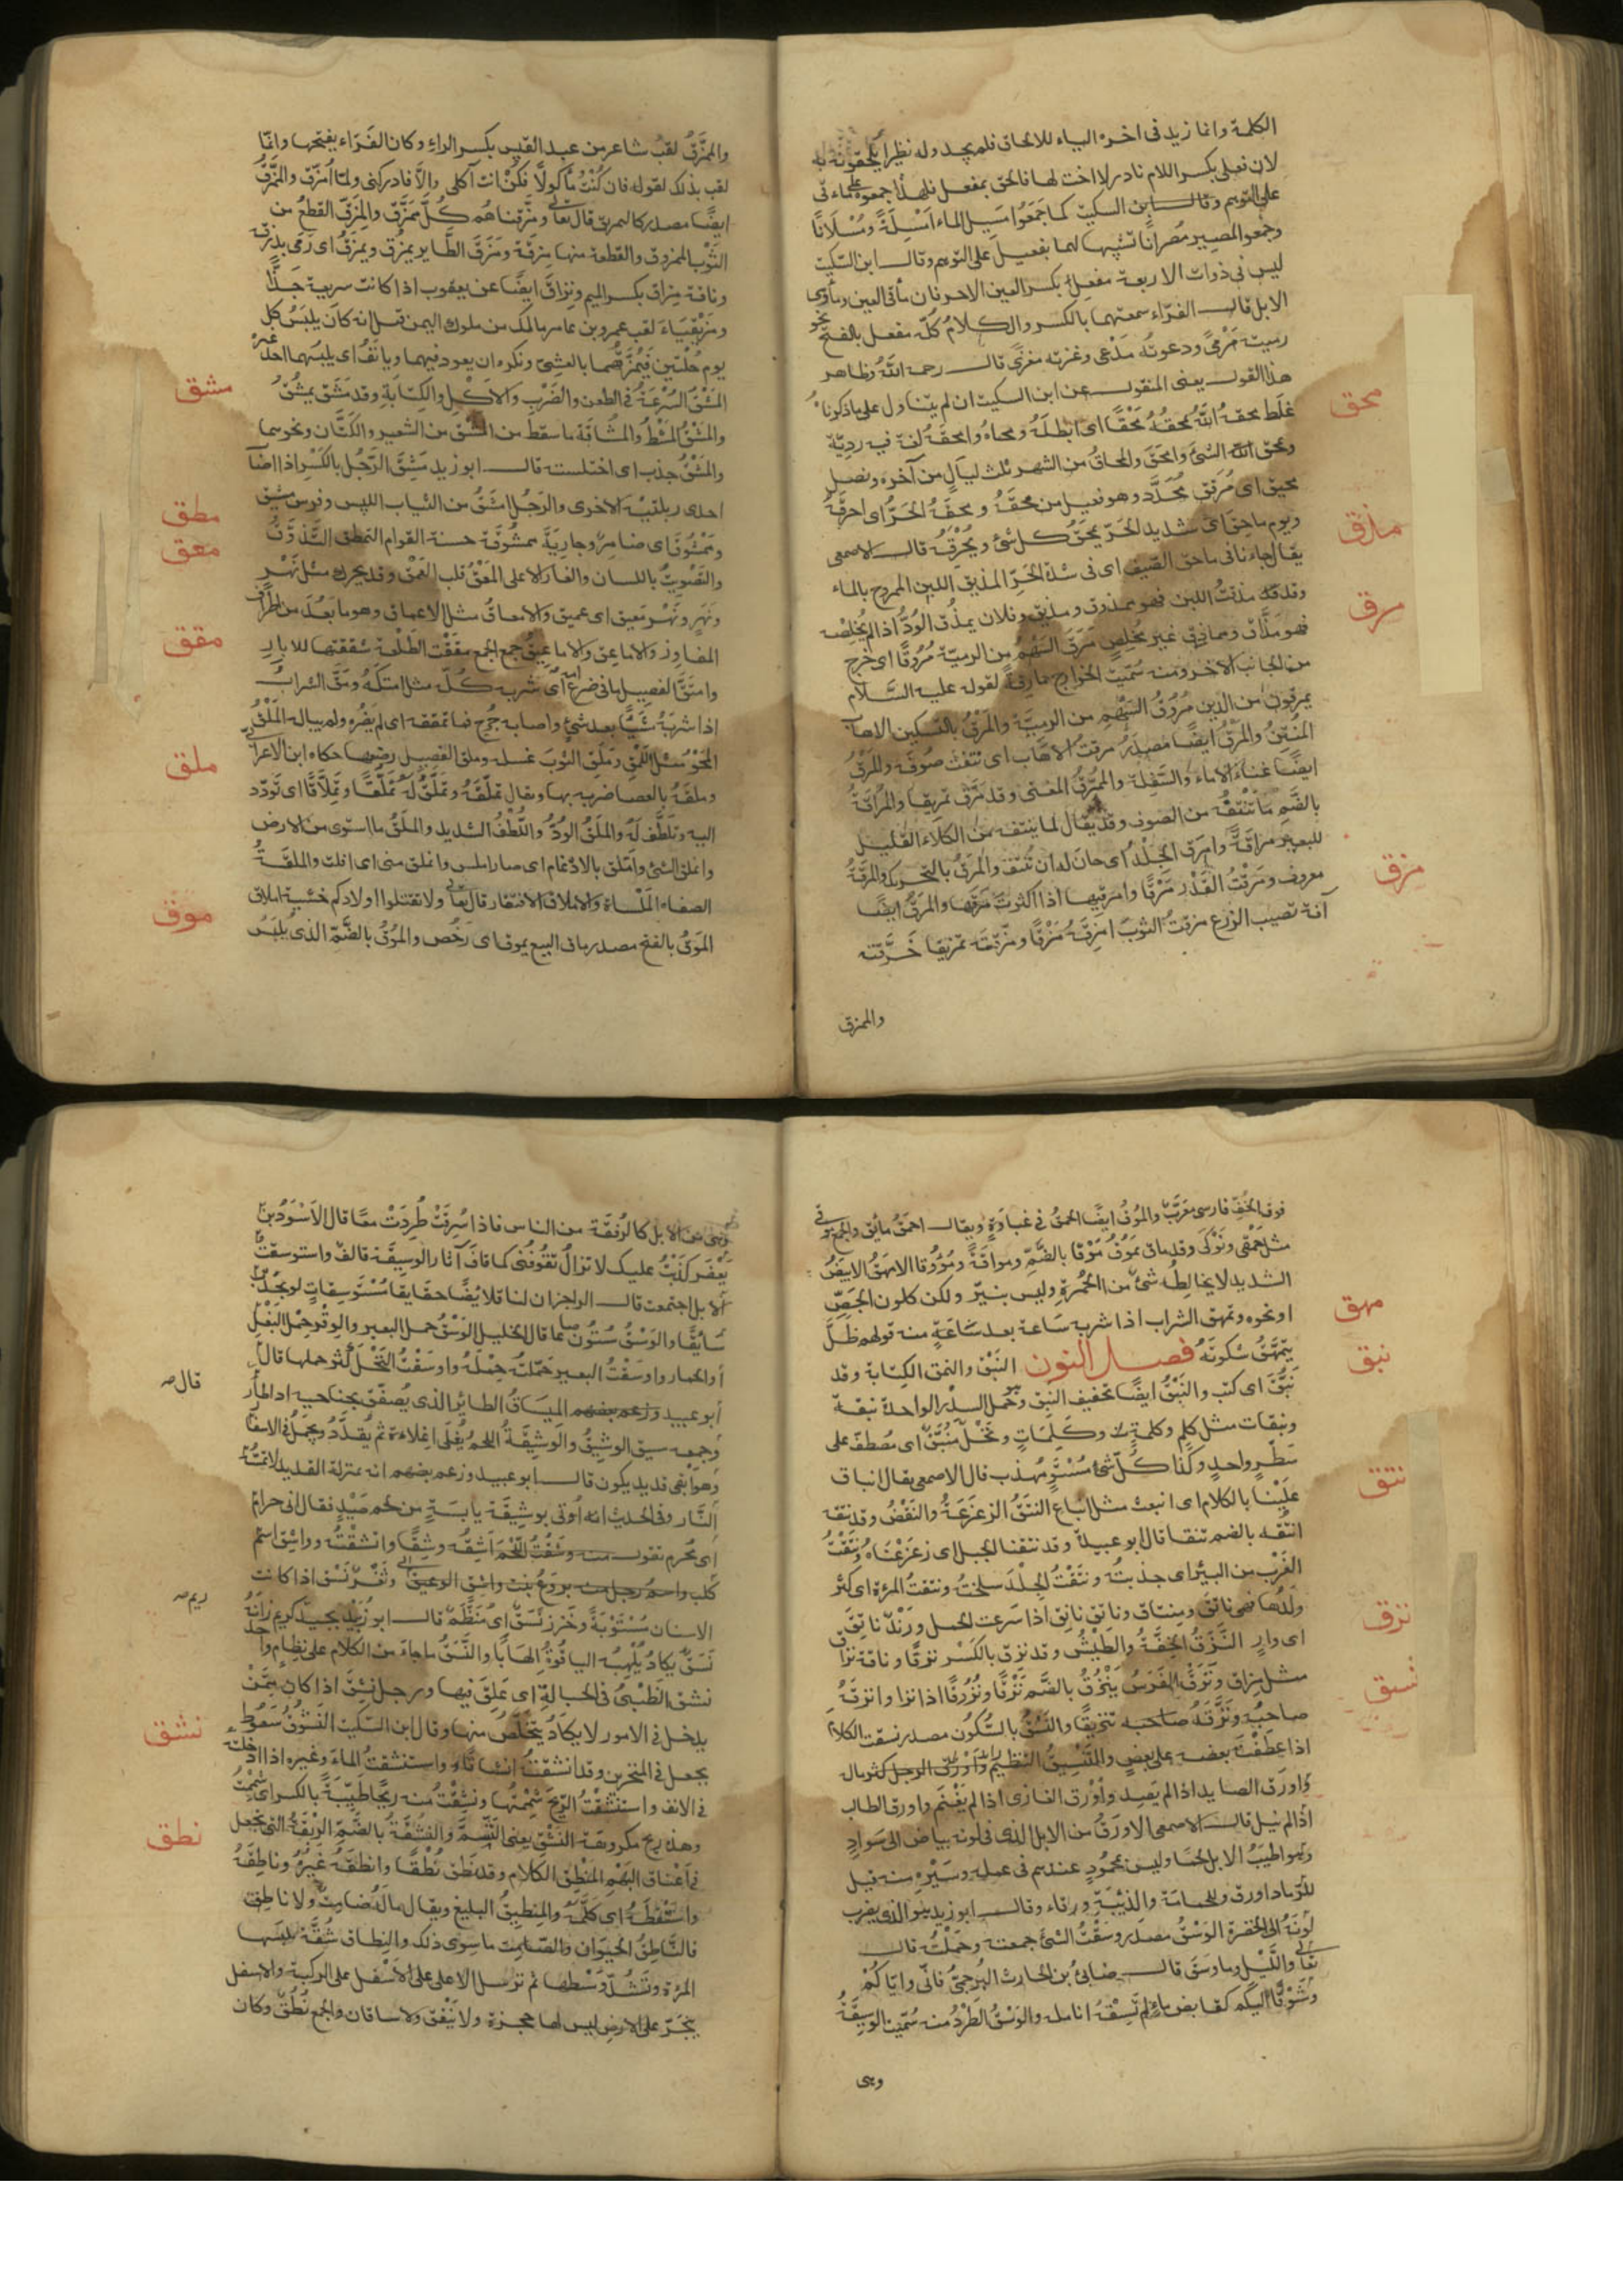 الكلمة وانما زيد فى اخره الياء للالحاق فلم يجد وله نظيرا يلحقونه به
لان فعلى بكسر اللام نادر لا اخت لها فالحق بمفعل فلهذا جمعوه على مآقى
على التوهم وقال ابن السكيت كما جمعوا مَسِيل الماء اَمْسِلَةً ومُسْلَانًا
وجمعوا المصير مُصرانا تشبيها لهما بفعيل على التوهم وقال ابن السكيت
ليس فى ذوات الاربعة مفعِلٌ بكسر العين الا حرفان مأقى العين ومأوى
الابل قال الفرّاء سمعتهما بالكسر والكلامُ كُلّه مفعل بالفتح نحو
رميته مَرْمًى ودعوتُه مَدْعًى وغزوته مغزًى قال رحمه اللهُ وظاهر
هذا القول يعنى المنقول عن ابن السكيت ان لم يتاول على ما ذكرنا
غلَط
محق
محقهُ اللّٰهُ يمحقُهُ مَحْقًا اى ابطلَهُ ومحاهُ وامحقَهُ لغة فيه رديّة
ومحق الله الشئَ وامحَقَ والمحاقُ من الشهر ثلث ليالٍ من آخره ونصل
محيق اى مُرقّق مُحَدَّد وهو فعيل من محقَهُ ومحقَهُ الحَرُّ اى احرقَهُ
ويوم ماحِق اى شديد الحَرّ يمحَقُ كل شئ ويُحْرِقُه قال الاصمعى
يقال جاءنا فى ماحق الصّيف اى فى شدة الحَرّ
مذق
المذيق اللبن الممزوج بالماء
وقد مذقتُ اللبن فهو ممذوق ومذيق وفلان يمذُق الودَّ اذا لم يُخلِصْه
فهو مَذَّاق ومماذِق غير مُخلِص
مرق
مَرَقَ السَّهْمُ من الرميّة مُرُوقًا اى خرج
من الجانب الآخر ومنه سُمّيت الخوارج مارِقةً لقوله عليه السَّلام
يمرقون من الدين مُرُوقَ السَّهْمِ من الرميّة والمَرْقُ بالتسكين الاهاب
المُنْتِنُ والمَرْقُ ايضًا مصدر مرقتُ الاهاب اى نتفتُ صُوفَه والمَرْقُ
ايضًا غناءُ الاماء والسَّفِلة والمُمَرِّقُ المغنى وقد مَرَّق تمريقا والمُراقَةُ
بالضَّم ما نَتَفتَهُ من الصوف وقد يقال لما ينتف من الكلاء القليل
للبعير مراقَةٌ وامرَق الجِلْدُ اى حانَ له ان يُنتَف والمَرَقُ بالتحريك والمَرَقَةُ
معروف ومرقتُ القِدْر مَرْقًا وامرقتُها اذا اكثرت مَرَقَها والمَرَقُ ايضًا
آفة تصيب الزرع
مزق
مزقتُ الثوبَ امزِقُهُ مَزْقًا ومزّقتُه تمزيقا خَرَّقته
والممزق
والممزَّقُ لقبُ شاعر من عبد القيس بكسر الراء وكان الفَرّاء يفتحها وانّما
لقب بذلك لقوله فان كُنْتُ مأكولًا فكُنْ انت آكلى والّا فادركنى ولمّا اُمزّق والممزَّقُ
ايضًا مصدر كالتمزيق قال تعالى ومزّقناهم كُلَّ مُمَزَّق والمِزَقُ القِطعُ من
الثَوْب الممزوق والقطعة منها مزقة ومَزَقَ الطَّاير يمزُق ويمزِقُ اى رمى بذرقه
وناقة مِزاق بكسر الميم ونِزاق ايضًا عن يعقوب اذا كانت سريعة جِدًّا
ومُزَيْقِيَاء لقب عمرو بن عامر مالك من ملوك اليمن قيل انه كان يلبَسُ كل
يوم حُلَّتين فيُمَزِّقُهما بالعشىّ ونكره ان يعود فيهما ويأنَفُ اى يلبَسُهما احد غيره
مشق
المَشْقُ السُّرْعَةُ فى الطعن والضَّرْب والاَكْل والكِتابة وقد مَشَق يمشُقُ
والمَشْقُ المَشْطُ والمُشَاقَة ما سقط من المَشْق من الشعر والكتَّان ونحوهما
والمَشْقُ جذب اى اختلست قال ابو زيد مَشِقَ الرَّجُل بالكَسْر اذا اصا
احدى ربلتيه الاخرى والرَجُل امشَقُ من الثياب اللبس وفرس مشيق
وممشوق اى ضامر وجاريَة ممشُوقَة حسنة القوام
مطق
التمطق التَّذوُّقُ
والتّصْويتُ باللسان والغار الاعلى
معق
المَعْقُ قلب العَمْق وقد يحرك مثل نَهْر
ونَهَر ونَهْر معيق اى عميق والامعاقُ مثل الاعماق وهو ما بعُدَ من اطراف
المفاوز والاماعق والاماعيقُ جمع الجمع
مقق
مقَقْت الطَلْعة شققتها للابار
وامتَقَّ الفصيل ما فى ضرع امّه اى شربه كُلَّه مثل امتكّه ومقّ الشراب
اذا شربَهُ شيأً بعد شئ واصابه جُرح فما تمققه اى لم يَضُرّه ولم يباله
ملق
المَلْقُ
المَحْوُ مثل اللَّمْق ومَلَق الثوبَ غسله وملق الفصيل رضعها حكاه ابن الاعرابى
وملقَهُ بالعصا ضربه بها ويقال تملَّقَهُ وتملّقُ لَهُ تملُّقًا وتِمِلّاقًا اى تَوَدّد
اليه وتلطَّف لَهُ والمَلَقُ الودُّ واللُّطْفُ الشديد والمَلَقُ ما استوى من الارض
وانملق الشئ وامّلق بالادغام اى صار املس وانملق منى اى افلت والملَقَةُ
الصفاة المَلْساة والاملاق الافتقار قال تعالى ولا تقتلوا اولادكم خشية املاق
موق
المَوْقُ بالفتح مصدر ماق البيع يموق اى رَخُص والمُوْقُ بالضَّمّ الذى يُلبَسُ
فوق الخُفِّ فارسى معَرَّب والمُوْقُ ايضًا الحُمقُ فى غباوَةٍ ويقال احمقُ مائق والجمع موقى
مثل حَمْقى ونَوْكَى وقد ماق يَمُوْقُ مُوْقًا بالضَّمّ ومواقَةً ومُؤُوقا
مهق
الامهَقُ الابيضُ
الشديد لا يخالِطُه شئ من الحُمْرةِ وليس بنيّر ولكن كلون الجِصِّ
او نحوه وتمهق الشراب اذا شربه سَاعة بعد سَاعةٍ منه قولهم ظَلَّ
يتمَهَّقُ شَكْوتَهُ فصل النون
نبق
النَبْق والنمق الكِتابة وقد
نبَّق اى كتب والنَبْقُ ايضًا تخفيف النبِق وهو حمل السدر الواحدة نبقة
ونبقات مثل كلِم وكلمةٍ وكَلِمَاتٍ ونَخْل مُنَبَّقٌ اى مُصْطَفّ على
سَطْرٍ واحدٍ وكذا كُلّ شئ مُسْتَوٍ مُهذّب قال الاصمعى يقال انباق
علَيْنا بالكلام اى انبعث مثل انباع
نتق
النَتْقُ الزَعزَعَةُ والنَفْضُ وقد نتقه
انتُقه بالضم نتقا قال ابو عبيدة وقد نتقنا الجبل اى زَعزَعْنَاهُ ونَتَقْتُ
الغَرْبَ من البئر اى جذبتُه ونَتَقْتُ الجِلْدَ سلختُه ونتقت المرءة اى كثر
ولدُها فهى ناتق ومِنتاق وناقة ناتِق اذا اَسرعت الحمل وزَنْدٌ ناتِقٌ
اى وارٍ
نزق
النَّزَقُ الخِفَّةُ والطَيْشُ وقد نزِق بالكَسْر نزقًا وناقة نزاق
مثل مِزاق ونَزَقَ الفَرَسُ يَنْزُقُ بالضَّم نَزْقًا ونُزُوقًا اذا نزا وانزقَهُ
صاحبُهُ ونزَّقَهُ صاحبه تنزيقًا
نسق
والنَسْقُ بالسُّكون مصدر نسقت الكلام
اذا عطفتَ بعضه على بعضٍ والتَنْسِيقُ التنظيم واَوْرَقَ الرجل كثر ماله
واورَق الصايد اذا لم يَصِد واَوْرق الغازى اذا لم يَغْنَم واورق الطالب
اذا لم ينل قال الاصمعى الاورَقُ من الابل الذى فى لونه بياض الى سَوادٍ
وهو اطيَبُ الابل لحمًا وليس بمحمُودٍ عندهم فى عمله وسَيْرِه منه قيل
للرَّماد اورق وللحمامة والذيْبَةِ ورقاء وقال ابو زيد هو الذى يضرب
لونَهُ الى الخضرة الوَسْقُ مصدر وسَقْتُ الشئَ جمعته وحَمَلْتُه قال
تعالى واللَّيْل وما وسَقَ قال ضابئُ بن الحارث البُرجمىّ فانّى وايّاكُمْ
وشَوْقًا اليكُم كقابض ماءٍ لم تَسِقْهُ انامله والوَسْقُ الطَرْدُ منه سُمّيَت الوسِيقَةُ
وهى
وهى من الابل كالرُفقَة من الناس فاذا سُرِقَتْ طُرِدَتْ معًا قال الاَسْوَدُ بنُ
يَعْفُر كذَبْتُ عليك لا تزالُ تقُوفُنى كما قافَ آثار الوسِيقَة قائف واستوسقت
الابل اجتمعت قال الراجز ان لنا قلائصًا حقايقا مُسْتَوسِقاتٍ لو يجدن
سَايقًا والوَسْقُ سِتُّون صاعا قال الخليل الوَسْقُ حمل البعير والوِقْر حِمْل البَغْل
او الحمار واوسَقْتُ البعير حمّلتُه حِمْلَهُ واوسَقْتُ النَّخْل كثر حملها قال
قال صه
ابو عبيد وزعم بعضهم الميسَاقُ الطائر الذى يُصَفِّق بجناحيه اذا طار
وجمعه سيق الوشيقُ والوشيقَةُ اللحم يُغلَى اغلاءةً ثم يُقدَّدُ ويُحمَلُ فى الاسفار
وهو ابقى قديد يكون قال ابو عبيد وزعم بعضهم انه بمنزلة القديد لا تمسُّهُ
النَّار وفى الحديث انه اُوتى بوشِيقَةٍ يابسَةٍ من لحم صَيْدٍ فقال انى حرامٌ
اى مُحرم تقول منه وشقتُ اللَّحم اَشِقُه وَشقًا واتّشَقْتُه وواشِق اسم
كلب واسم رجل منه بروَعُ بنت واشق الوعيق وثَغْرٌ نسَق اذا كانت
ريم صه
الاسنان مُسْتَوْيَةً وخَرَز نَسَقٌ اى مُنَظَّم قال ابو زُبَيْد بجيدِ كريم زانَهُ
نَسَقٌ يكادُ يُلْهِبُهُ الياقُوتُ اِلهابًا والنَّسَقُ ما جاء من الكلام على نِظامٍ واحد
نشق
نشق الظَبْىُ فى الحبالةِ اى عَلِقَ فيها ورجل نشِقٌ اذا كان ممَّنْ
يدخل فى الامور لا يكاد يتخلَّصُ منها وقال ابن السكيت النَشُوْقُ سَعُوط
يجعل فى المنخرين وقد انشقتُه انشاقًا واستنشقتُ الماءَ وغيرهَ اذا ادخلته
فى الانف واستنشقتُ الرّيحَ شمِمتُها ونشِقْتُ منه ريحًا طيّبَةً بالكسر اى شَمِمْتُ
وهذه ريح مكروهة النَشْقِ يعنى الشَّمَّ والنُشْقَةُ بالضَّمّ الرِّبْقَةُ التى تجعل
نطق
فى اَعْناق البَهْم المَنْطِق الكلام وقد نَطَق نُطْقًا وانطقَهُ غَيْرُهُ وناطقَهُ
واستَنْطقَهُ اى كلَّمَهُ والمِنطيقُ البليغ ويقال مالَهُ صَامِت ولا ناطِق
فالنَّاطِقُ الحيوان والصَّامِت ما سِوى ذلك والنِطاق شُقَّة تلبَسها
المرءة وتَشُدُّ وَسْطها ثم تُرسل الاعلى على الاسفل على الركبة والاسفل
ينجَرُّ على الارض ليس لها حجزة ولا نَيْفَق ولا ساقان والجمع نُطُقٌ وكان